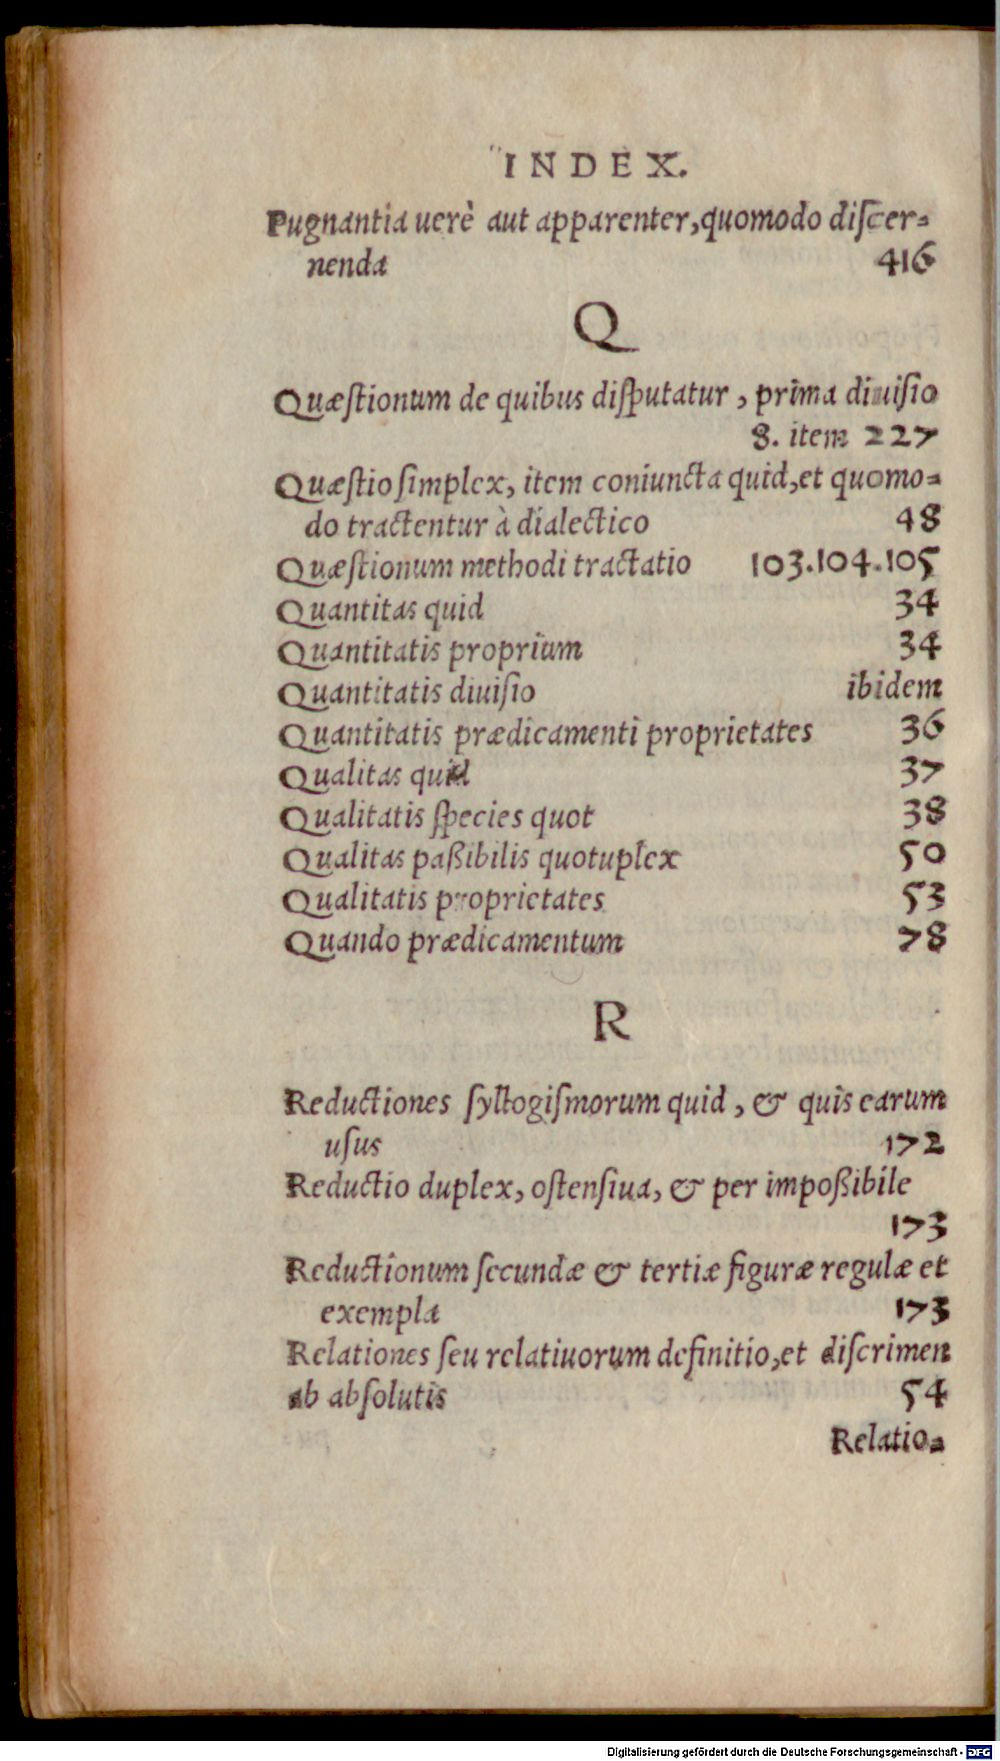 INDEX.
Pugnantia uerè aut apparenter, quomodo diſcer-
nenda 416
Q
Quæſtionum de quibus diſputatur, prima diuiſio
8. item 227
Quæſtio ſimplex, item coniuncta quid, et quomo-
do tractentur à dialectico 48
Quæſtionum methodi tractatio 103.104.105
Quantitas quid 34
Quantitatis proprium 34
Quantitatis diuiſio ibidem
Quantitatis prædicamenti proprietates 36
Qualitas quid 37
Qualitatis ſpecies quot 38
Qualitas paßibilis quotuplex 50
Qualitatis proprietates 53
Quando prædicamentum 78
R
Reductiones ſyllogiſmorum quid, & quis earum
uſus 172
Reductio duplex, oſtenſiua, & per impoßibile
173
Reductionum ſecundæ & tertiæ figuræ regulæ et
exempla 173
Relationes ſeu relatiuorum definitio, et diſcrimen
ab abſolutis 54
Relatio-
Digitalisierung gefördert durch die Deutsche Forschungsgemeinschaft - DFG